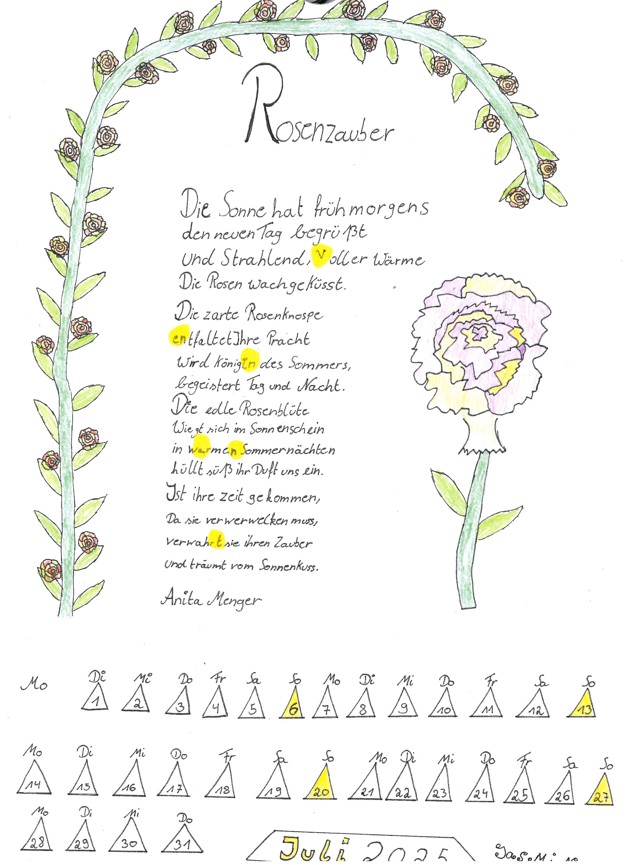 Rosenzauber
Die Sonne hat frühmorgens
den neuen Tag begrüßt
und Strahlend, voller Wärme
Die Rosen wachgeküsst.
Die zarte Rosenknospe
entfaltet Ihre Pracht
wird Königin des Sommers,
begeistert Tag und Nacht.
Die edle Rosenblüte
Wiegt sich im Sonnenschein
in warmen Sommernächten
hüllt süß ihr Duft uns ein.
Ist ihre zeit gekommen,
Da sie verwerwelken muss,
verwahrt sie ihren Zauber
und träumt vom Sonnenkuss.
Anita Menger
Mo Di Mi Do Fr Sa So Mo Di Mi Do Fr Sa So
1 2 3 4 5 6 7 8 9 10 11 12 13
Mo Di Mi Do Fr Sa So Mo Di Mi Do Fr Sa So
14 15 16 17 18 19 20 21 22 23 24 25 26 27
Mo Di Mi Do
28 29 30 31
Juli 2025